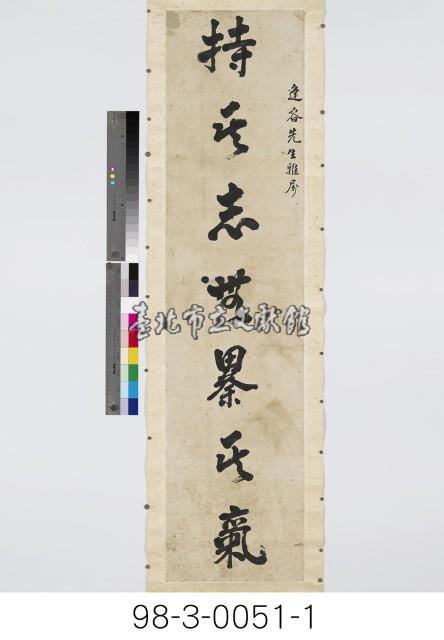 逢容先生雅屬
持其志無暴其氣
臺北市立文獻館
98-3-0051-1